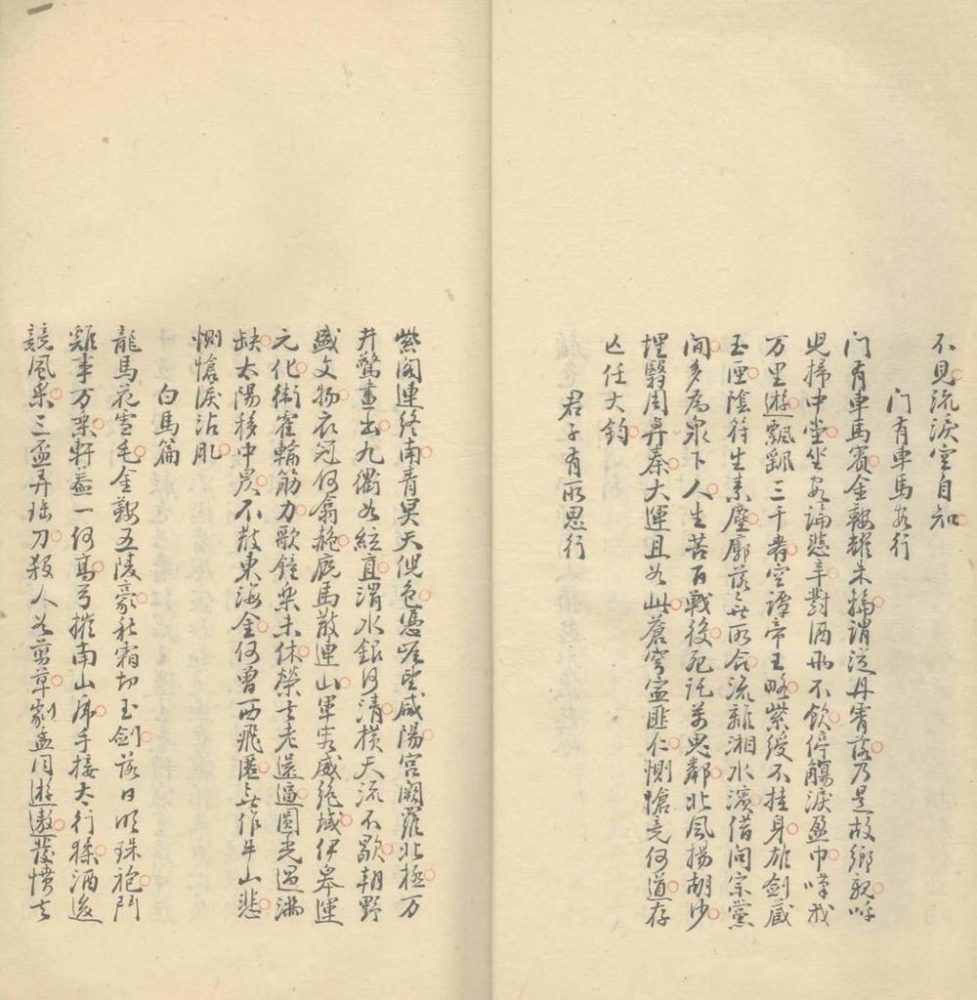 不見流淚空自知
門有車馬客行
门有車馬賓金鞍耀朱輪謂從丹霄落乃是故鄉親呼
児掃中堂坐客論悲辛對酒兩不飲停觴淚盈巾嘆我
万里遊飄飄三十春空譚帝王略紫綬不挂身雄劍藏
玉匣陰符生素塵廓落無所合流離湘水濱借问宗黨
间多為泉下人生苦百戰後死託萬鬼鄰北風揚胡沙
埋翳周與秦大運且如此蒼穹寧匪仁惻愴竟何道存
亡任大鈞
君子有所思行
紫閣連終南青冥天倪色憑崖望咸陽宫闕羅北極万
井驚畫出九衢如絃直渭水銀河清横天流不歇朝野
盛文物衣冠何翕赩厩馬散連山軍容威絶域伊皋運
元化衛霍輸筋力歌鐘樂未休榮去老還逼圓光過滿
缺太陽移中昃不散東海金何曾西飛匿無作牛山悲
惻愴淚沾肊
白馬篇
龍馬花雪毛金鞍五陵豪秋霜切玉劍落日明珠袍鬥
雞事万乘軒蓋一何高弓摧南山虎手接太行猱酒後
競風采三盃弄珤刀殺人如剪草劇孟同遊遨發憤去